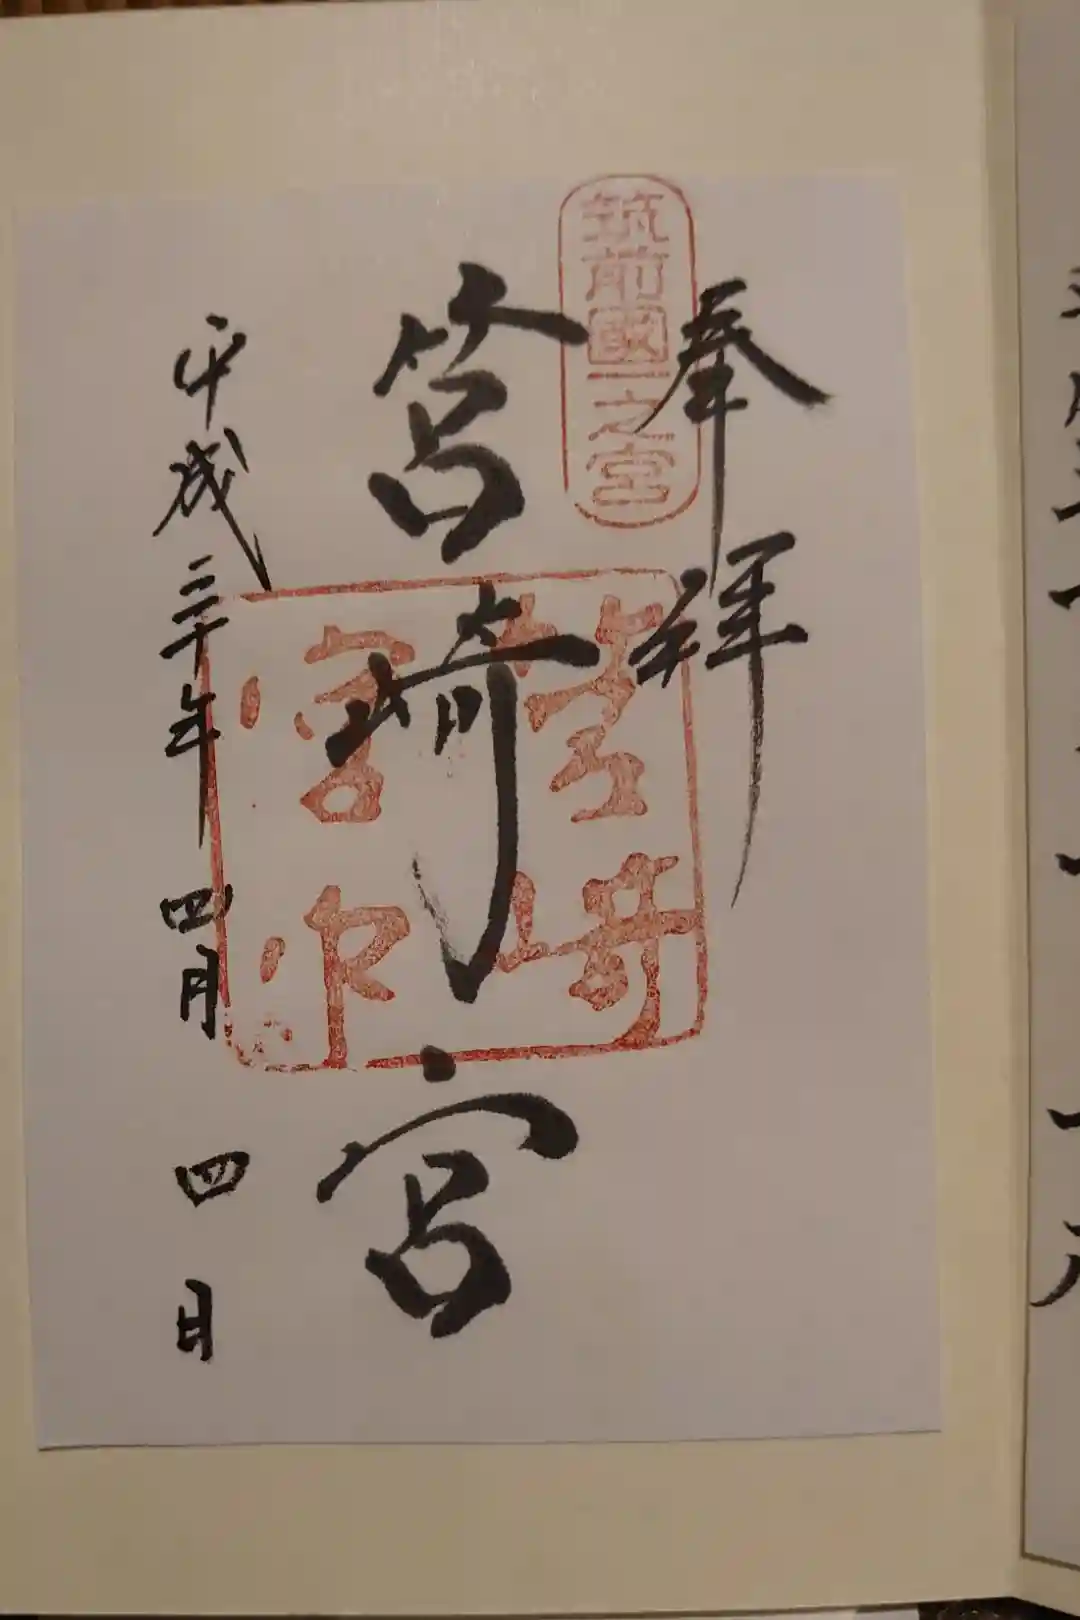 奉拝
筑前國一之宮
筥崎宮
筥崎宮印
平成三十年四月四日